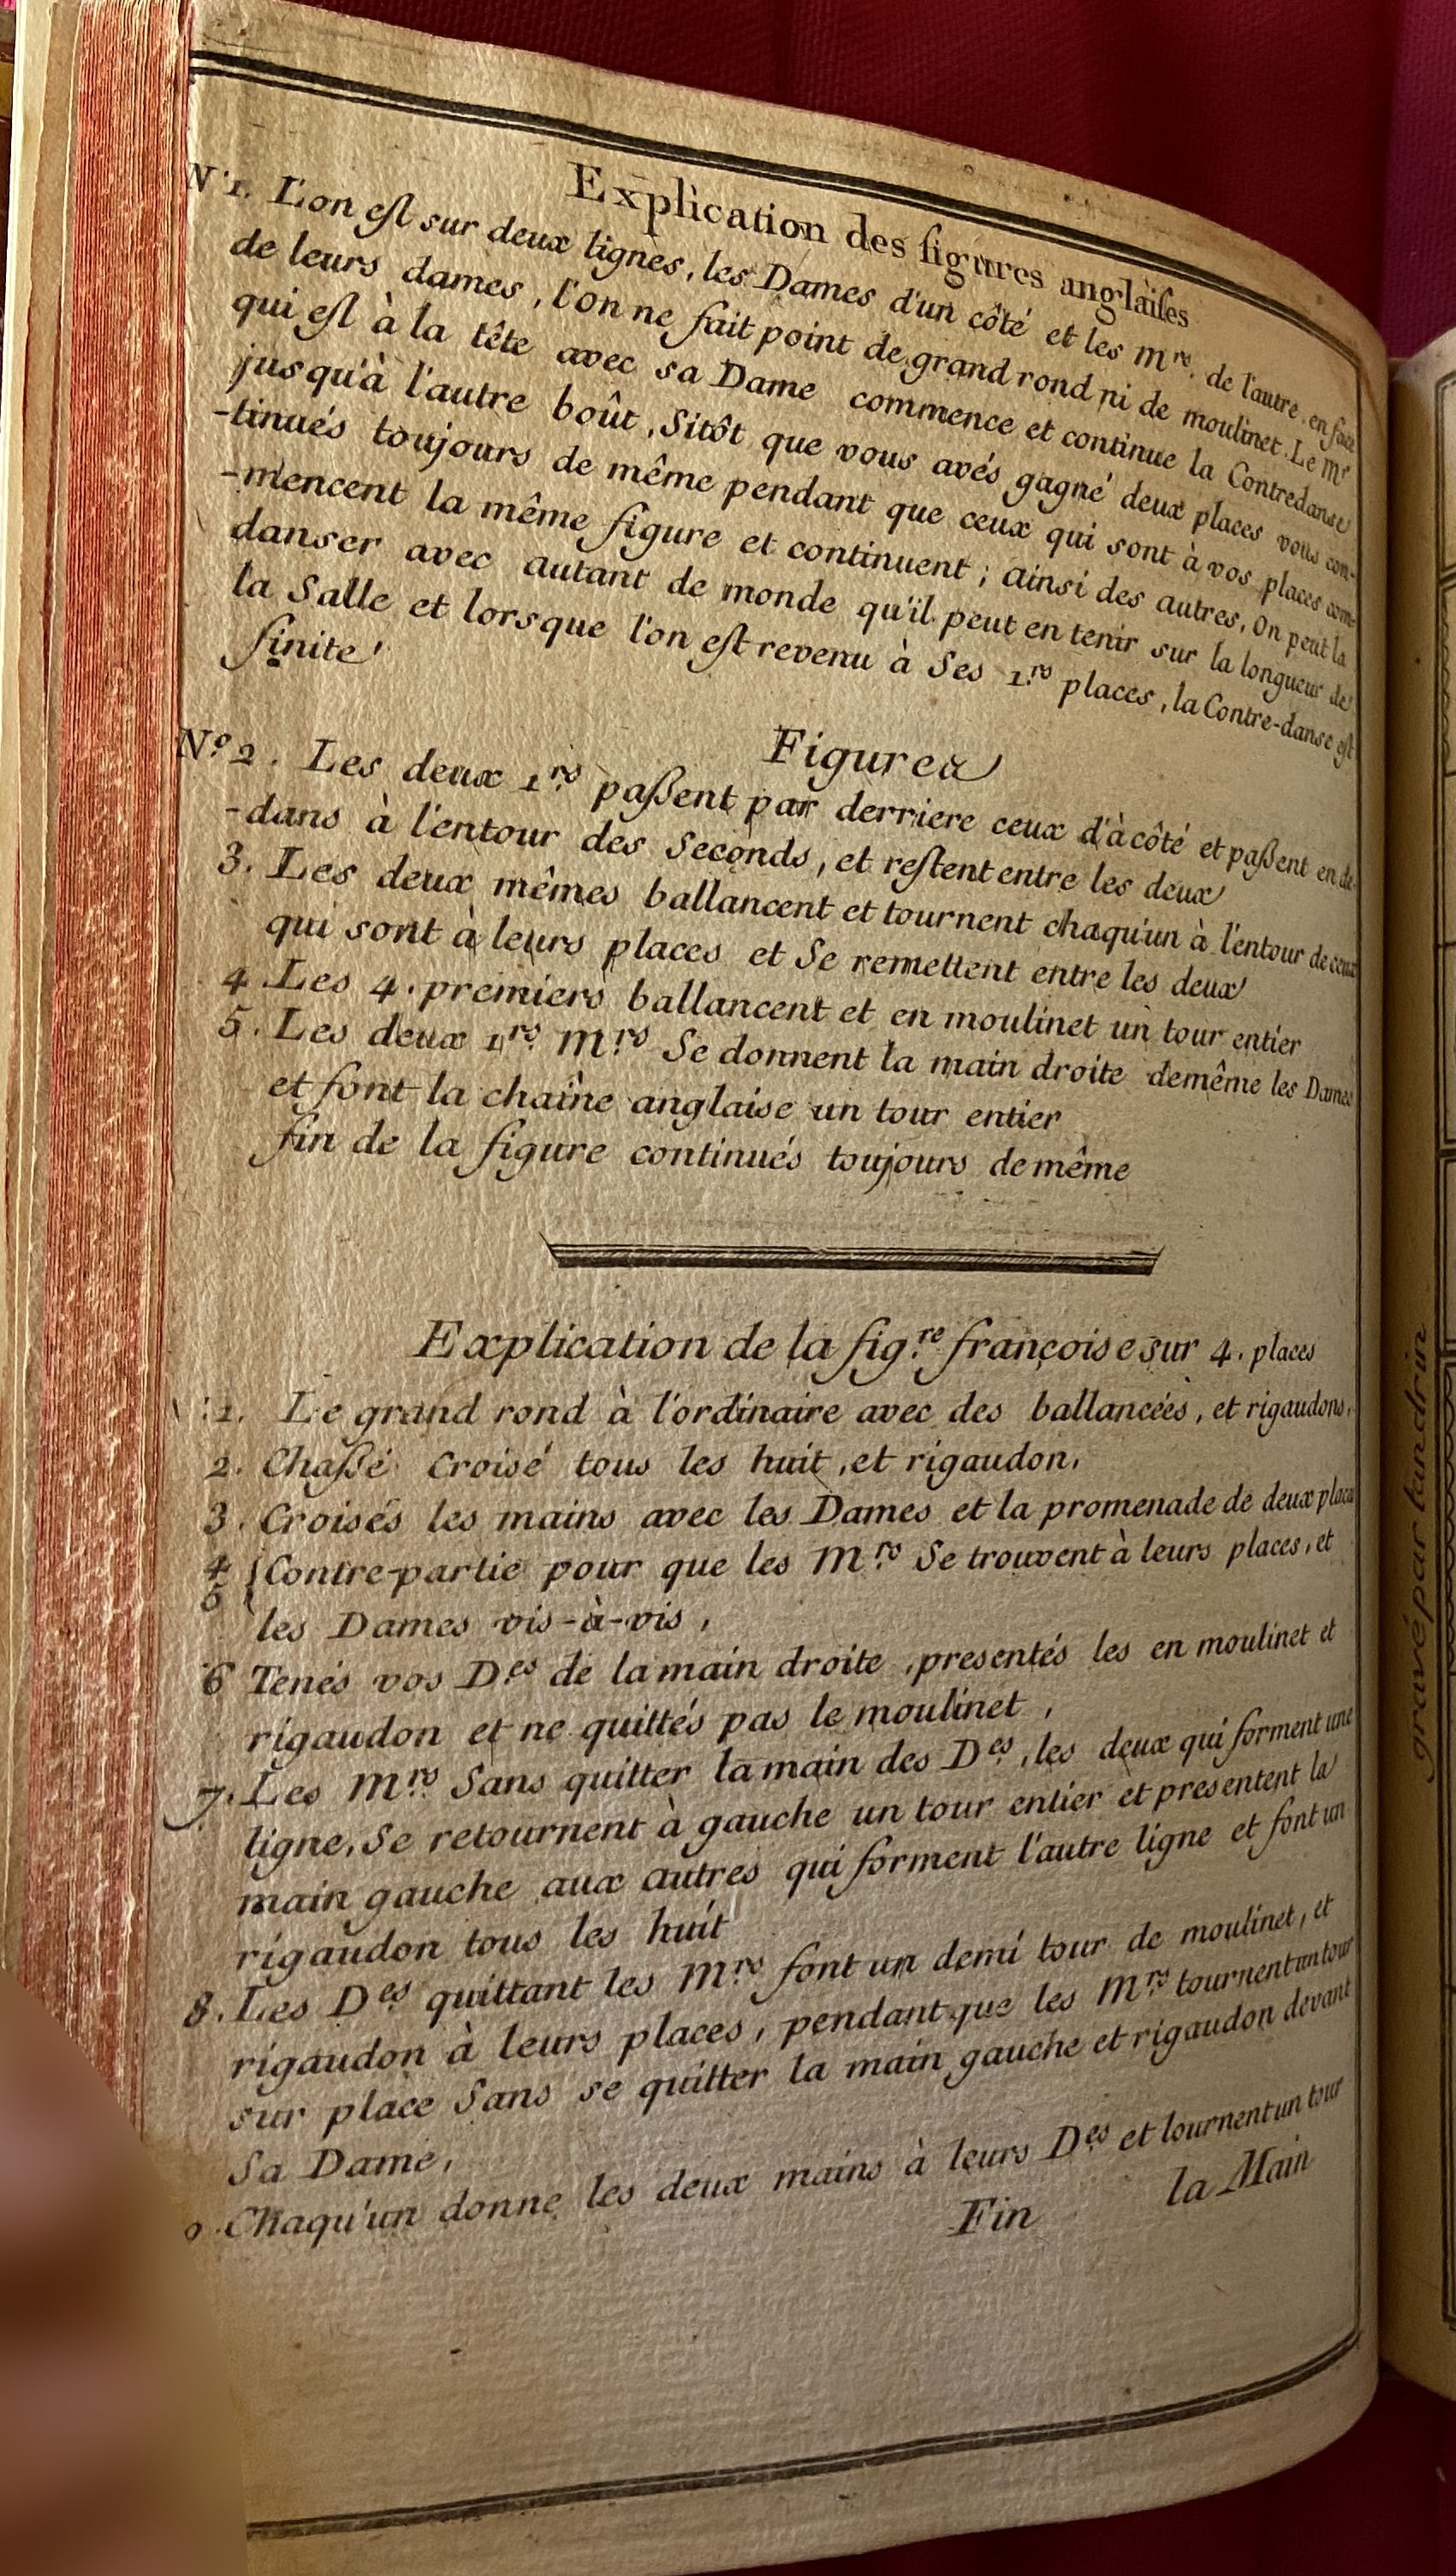 Explication des figures anglaises
N.º 1. L'on est sur deux lignes, les Dames d'un côté et les m.rs de l'autre en face
de leurs dames, l'on ne fait point de grand rond ni de moulinet. Le M.r
qui est à la tête avec sa Dame commence et continue la Contredanse
jusqu'à l'autre boût, Sitôt que vous avés gagné deux places vous con-
-tinués toujours de même pendant que ceux qui sont à vos places com-
-mencent la même figure et continuent ; ainsi des autres, On peut la
danser avec autant de monde qu'il peut en tenir sur la longueur de
la Salle et lorsque l'on est revenu à Ses 1.rs places, la Contre-danse est
finite
Figures
N.º 2. Les deux 1.rs passent par derriere ceux d'à côté et passent en de-
-dans à l'entour des Seconds, et restent entre les deux
3. Les deux mêmes ballancent et tournent chaqu'un à l'entour de ceux
qui sont à leurs places et Se remettent entre les deux
4. Les 4. premiers ballancent et en moulinet un tour entier
5. Les deux 1.rs M.rs Se donnent la main droite de même les Dames
et font la chaîne anglaise un tour entier
fin de la figure continués toujours de même
Explication de la fig.re françoise sur 4. places
1. Le grand rond à l'ordinaire avec des ballancées, et rigaudons,
2. Chassé Croisé tous les huit, et rigaudon,
3. Croisés les mains avec les Dames et la promenade de deux places
4 { Contre-partie pour que les M.rs Se trouvent à leurs places, et
5 { les Dames vis-à-vis,
6 Tenés vos D.es de la main droite, presentés les en moulinet et
rigaudon et ne quittés pas le moulinet,
7. Les M.rs Sans quitter la main des D.es, les deux qui forment une
ligne, Se retournent à gauche un tour entier et presentent la
main gauche aux autres qui forment l'autre ligne et font un
rigaudon tous les huit
8. Les D.es quittant les M.rs font un demi tour de moulinet, et
rigaudon à leurs places, pendant que les M.rs tournent un tour
sur place Sans se quitter la main gauche et rigaudon devant
Sa Dame,
9. Chaqu'un donne les deux mains à leurs D.es et tournent un tour
Fin la Main
gravé par Landrin